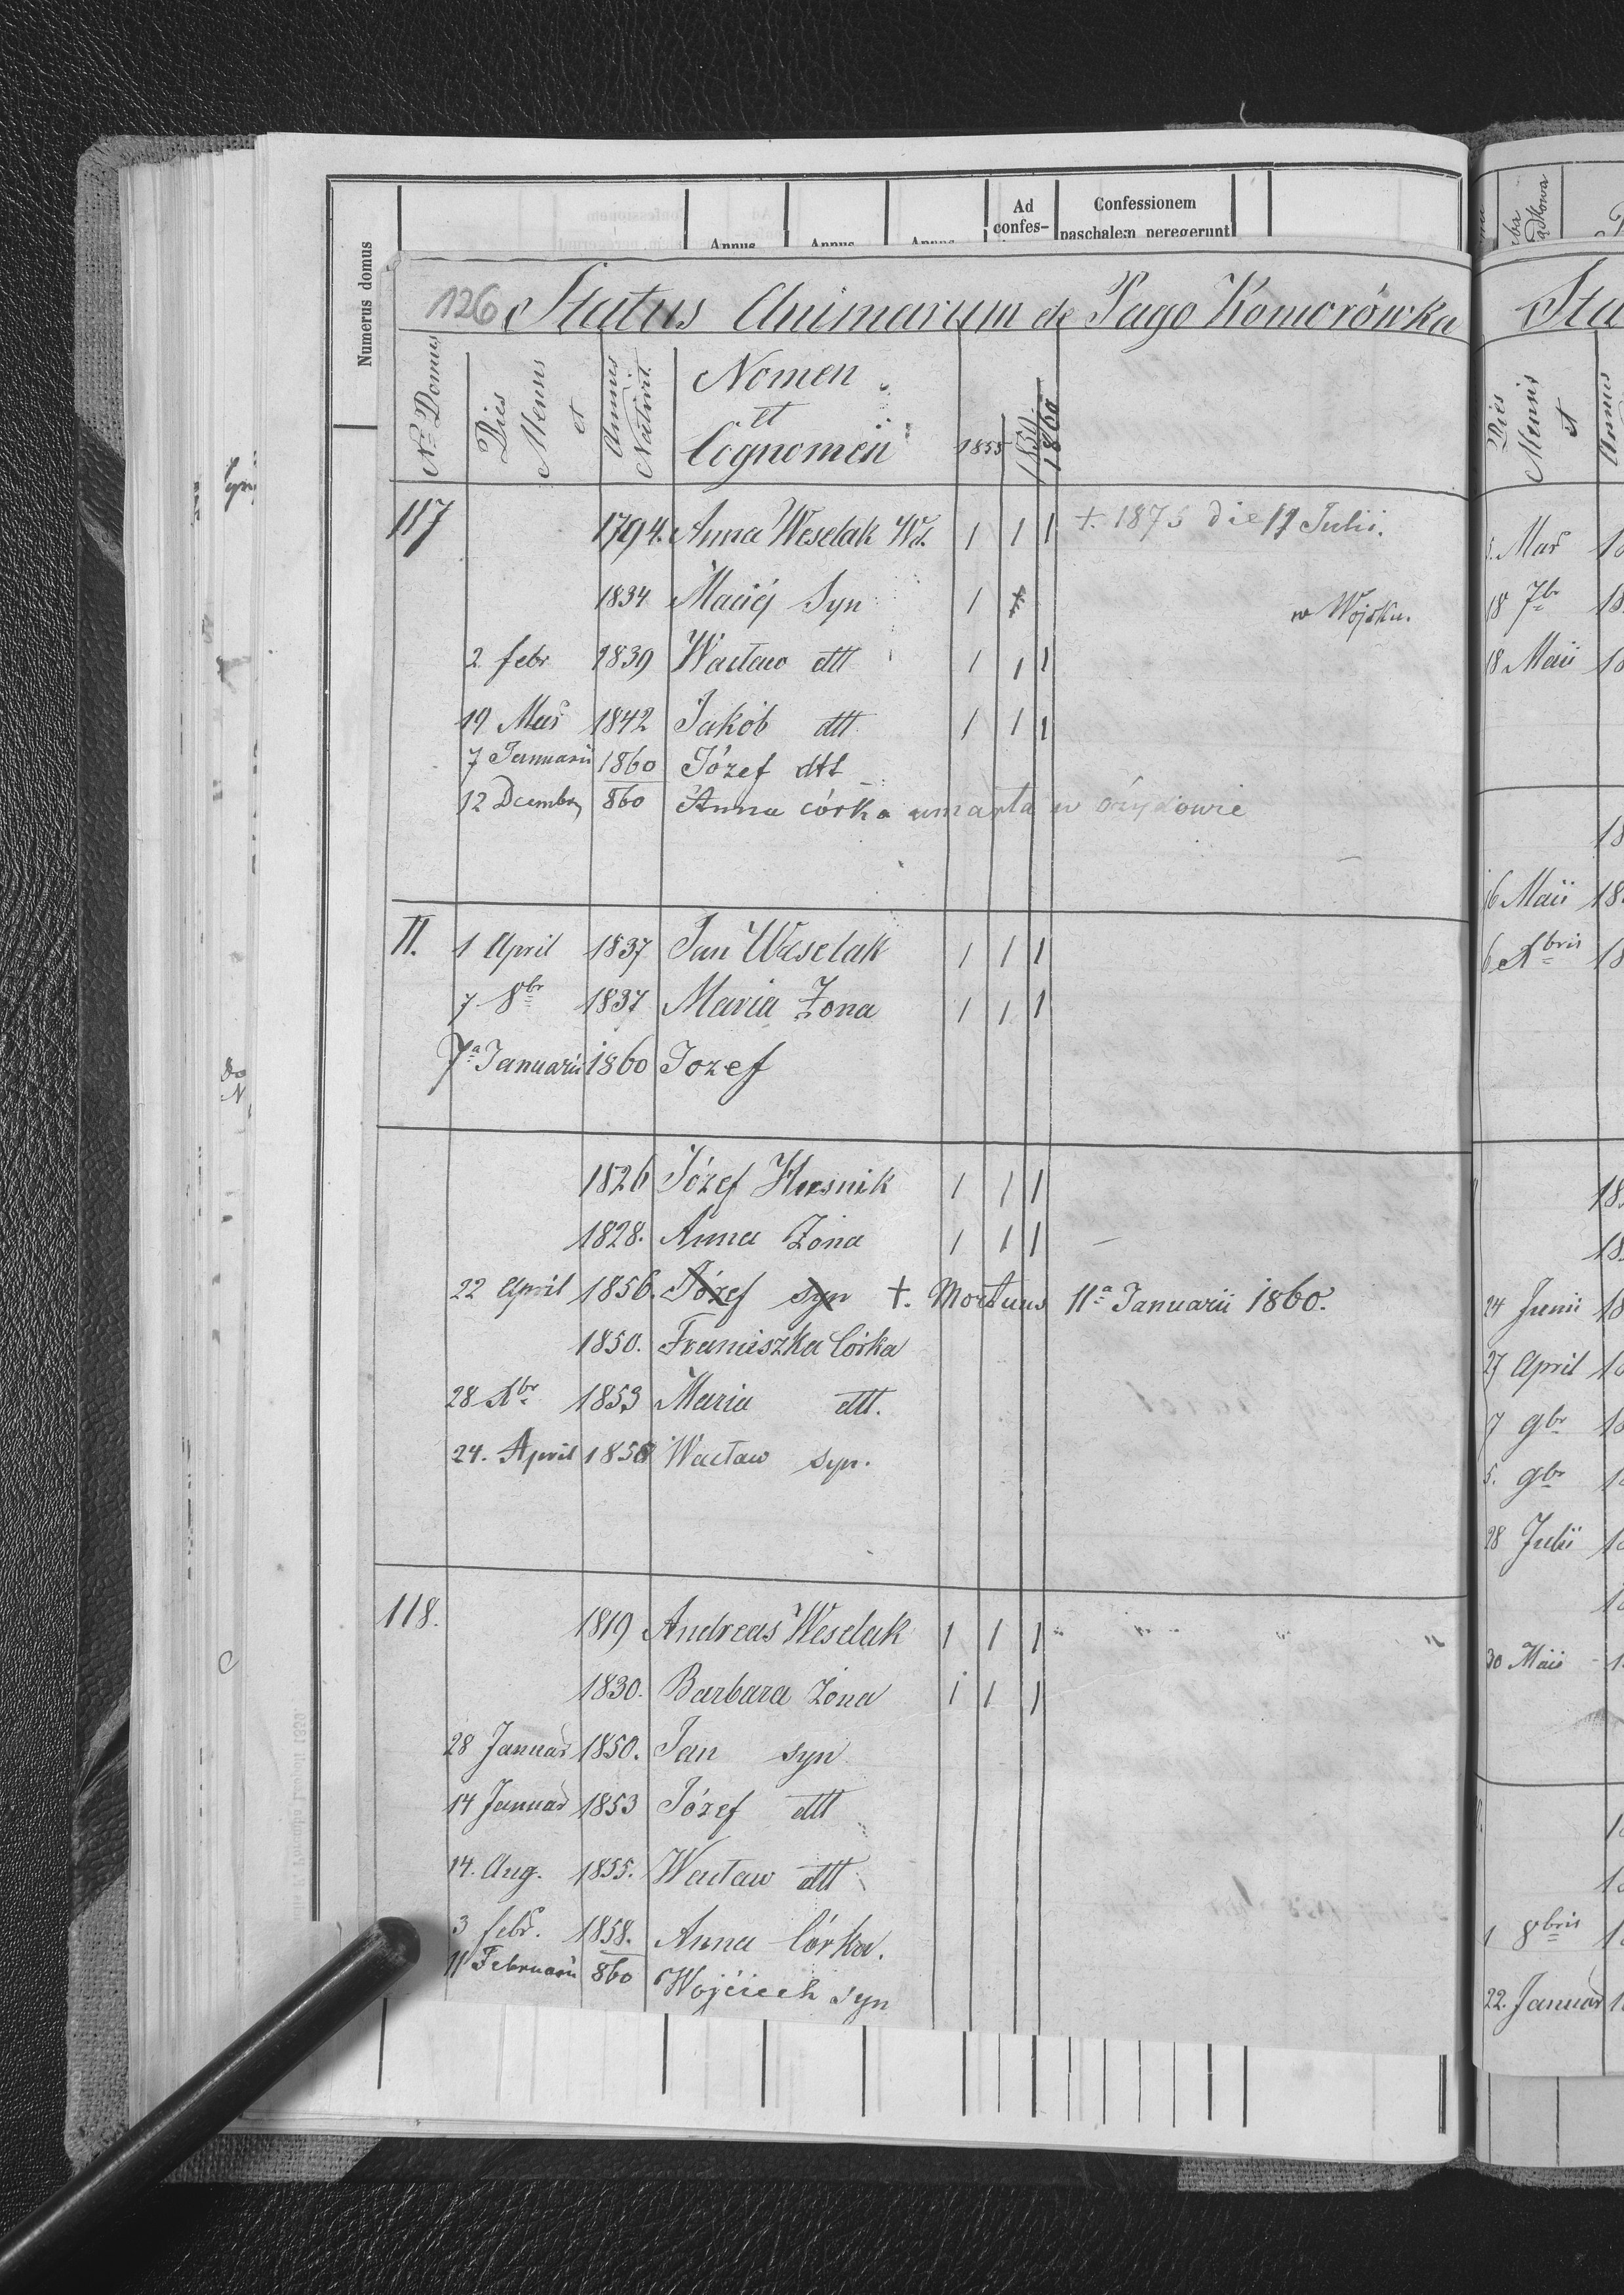 Numerus domus
Annus Annus Annus
Ad confes-
Confessionem
paschalem peregerunt
126 Status Animarum de Pago Komorówka
Nr Domus
Dies Mensis et
Annus Nativit.
Nomen
et
Cognomen
1858 1859 1860
117 1794. Anna Weselak Wd. 1 1 1 +. 1875 die 17 Julii.
1834 Maciej Syn 1 w Wojsku.
2. febr 1839 Wacław dtt 1 1 1
19 Mar 1842 Jakób dtt 1 1 1
7 Januarii 1860 Józef dtt
12 Dcembr 860 Anna córka umarła w
II. 1 April 1837 Jan Weselak 1 1 1
7 8br 1837 Maria Żona 1 1 1
7a Januarii 1860 Jozef
1826 Józef Husnik 1 1 1
1828. Anna Żona 1 1 1
22 April 1856. Józef syn +. Mortuus 11a Januarii 1860.
1850. Franciszka Córka
28 Xbr 1853 Maria dtt.
24. April 1858 Wacław syn.
118. 1819 Andreas Weselak 1 1 1
1830. Barbara Żona 1 1 1
28 Januar 1850. Jan syn
14 Januar 1853 Józef dtt
14. Aug. 1855. Wacław dtt
3 febr. 1858. Anna Córka.
11 Februarii 860 Wojciech syn
Sta
Dies
Mensis
et
Annus
Mar 18
18 7br 18
18 Maii 18
18
16 Maii 18
6 Xbris 18
18
18
24 Junii 18
27 April 18
7 9br 18
5. 9br 18
28 Julii 18
30 Maii
1 8bris
22. Januar